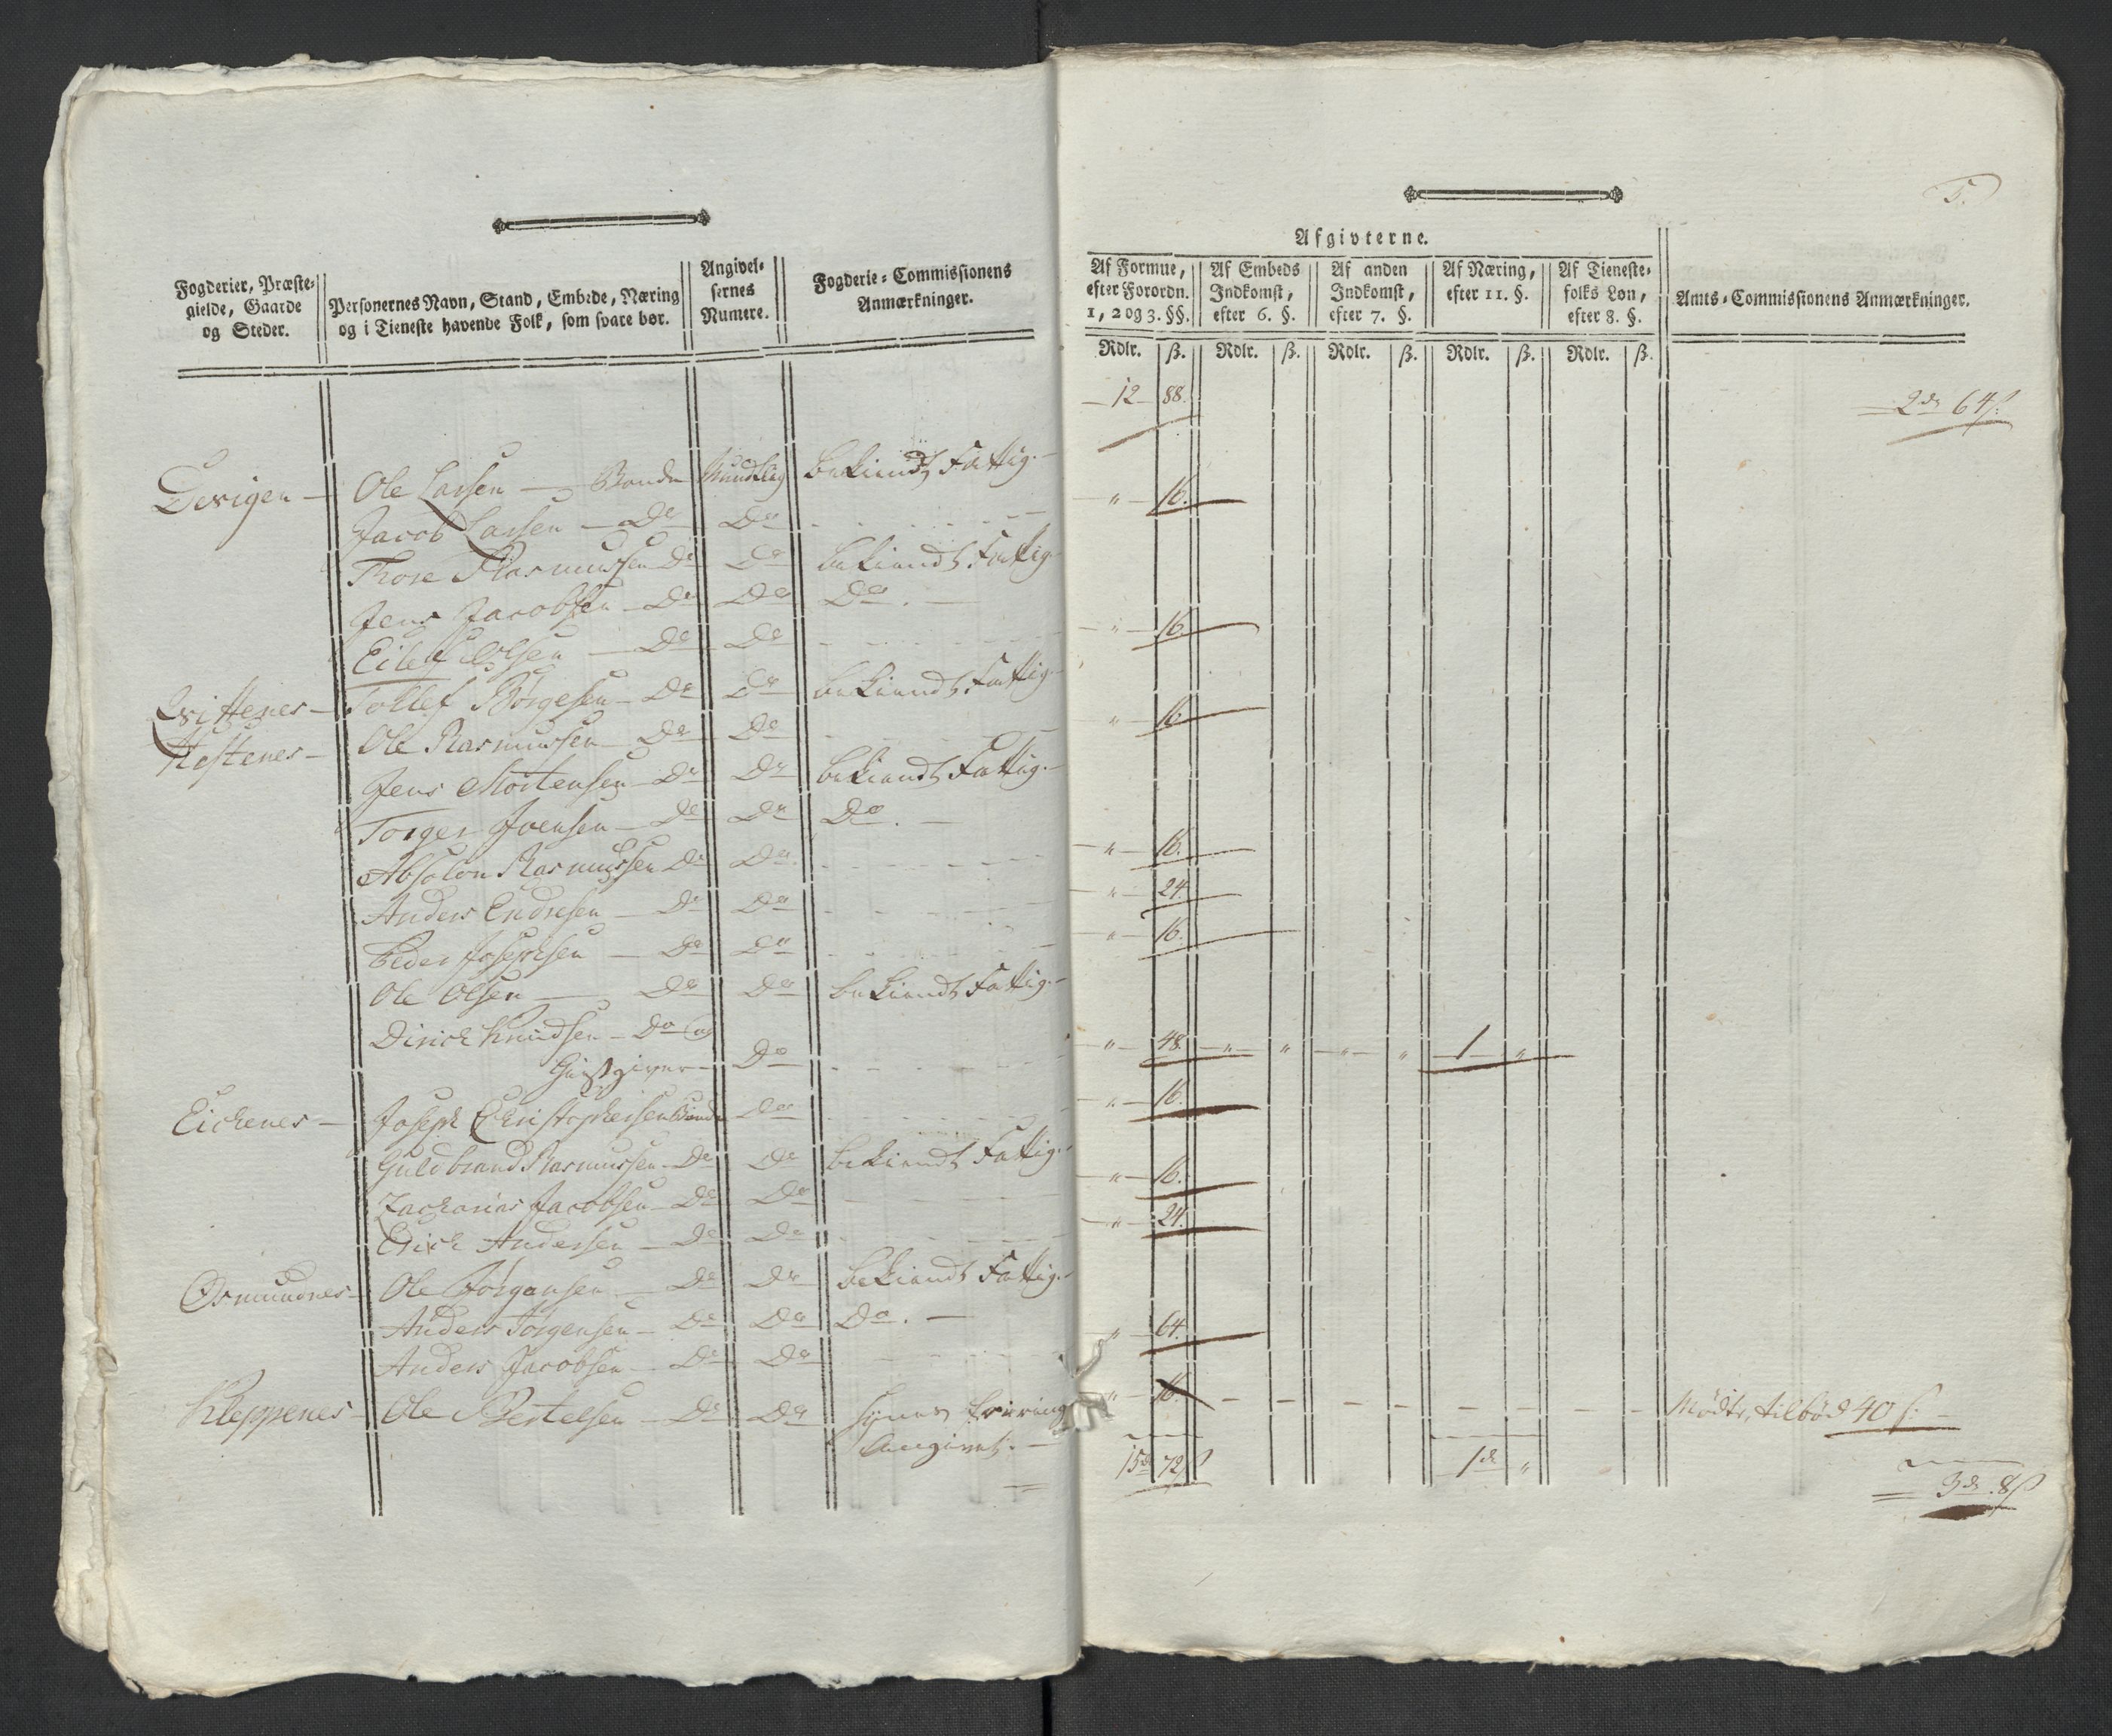 Fogderier, Præste-
gielde, Gaarde
og Steder.
Personernes Navn, Stand, Embede, Næring
og i Tieneste havende Folk, som svare bør.
Angivel-
sernes
Numere.
Fogderie-Commissionens
Anmærkninger.
Ole Larsen — Bonde Mundtlig bekiendt Fattig.
Jacob Larsen — Do Do
Thore Rasmussen Do Do bekiendt Fattig
Jens Jacobsen — Do Do Do. —
Eilef Olsen — Do Do
Tollef Börgesen — Do Do bekiendt Fattig
Hestenes — Ole Rasmussen Do Do
Jens Mortensen Do Do bekiendt Fattig.
Torger Joensen — Do Do Do. —
Absolon Rasmussen Do Do
Anders Endresen — Do Do
Peder Josephsen — Do Do
Ole Olsen — Do Do bekiendt Fattig.
Dirick Knudsen — Do og
Giestgiver — Do
Eichenes — Joseph Christophersen Bonde Do
Guldbrand Rasmussen Do Do bekiendt Fattig.
Zacharias Jacobsen — Do Do
Erich Andersen — Do Do
Osmundnes — Ole Jörgensen Do Do bekiendt Fattig.
Anders Jörgensen — Do Do Do. —
Anders Jacobsen — Do Do
Kleppenes — Ole Bertelsen — Do Do synes
Angivet. —
5.
Afgivterne.
Af Formue,
efter Forordn.
1, 2 og 3. §§.
Af Embeds
Indkomst,
efter 6. §.
Af anden
Indkomst,
efter 7. §.
Af Næring,
efter 11. §.
Af Tieneste-
folks Løn,
efter 8. §.
Amts-Commissionens Anmærkninger.
Rdlr. ß. Rdlr. ß. Rdlr. ß. Rdlr. ß. Rdlr. ß.
12 88. 2 dr 64 ß.
" 16.
" 16.
" 16.
" 16.
" 24.
" 16.
" 48. " " " " 1 "
" 16.
" 16.
" 24.
" 64.
" 16. Mödte, tilböd 40 ß.
15 d 72 ß 1 d " 3 d 8 ß